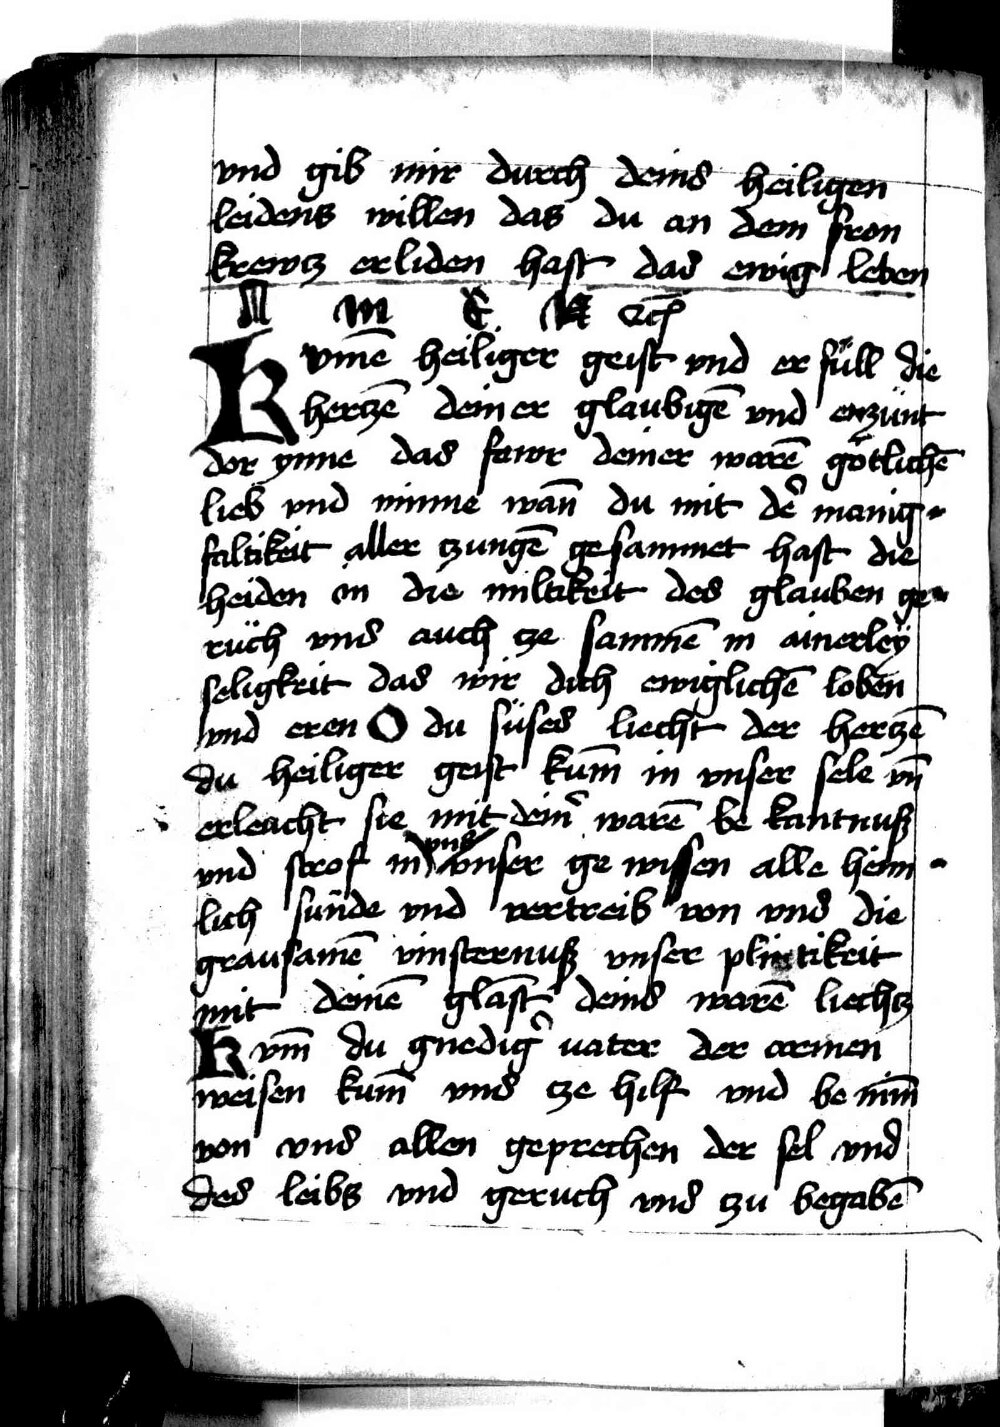 vnd gib mir durch deins heiligen
leidens willen das du an dem fron
krewtz erliden hast das ewig leben
A M E N
Kvmē heiliger geist vnd er füll die
hertzē deiner glaubigē vnd enzünt
dor ynne das fewr deiner warē götlichē
lieb vnd minne wañ du mit dẽ manig-
faltikeit aller tzungē gesammet hast die
heiden in die miltikeit des glauben ge-
rüch vns auch tze sammē in ainerleÿ
seligkeit das wir dich ewiglichē loben
vnd eren O du süses liecht der hertzē
du heiliger geist kum̄ in vnser sele vn̄
erleucht sie mit dein̄ warē be kantnuß
vnd strof in vns vnser ge wissen alle heim-
lich sünde vnd vertreib von vns die
grausamē vinsternuß vnser plintikeit
mit deinē glast deins warē liechtz
Kvm̄ du gnedig̃ vater der armen
weisen kum̄ vns tze hilf vnd be nim̄
von vns allen geprechen der sel vnd
des leibs vnd geruch vns tzu begabē